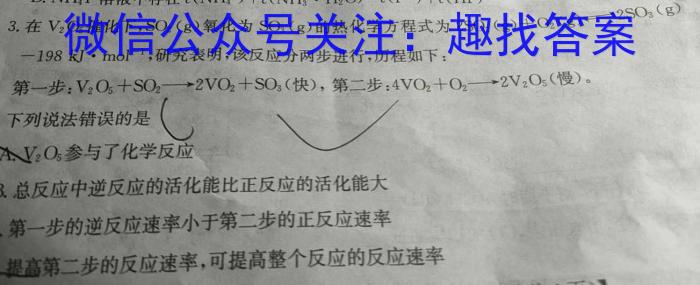 3.在 V
微信公众号关注：趣找答案
2SO₃(g)
-198 kJ·mol⁻¹,研究表明,该反应分两步进行,历程如下:
第一步:V₂O₅+SO₂→2VO₂+SO₃(快),第二步:4VO₂+O₂→2V₂O₅(慢)。
下列说法错误的是
A.V₂O₅参与了化学反应
B.总反应中逆反应的活化能比正反应的活化能大
.第一步的逆反应速率小于第二步的正反应速率
提高第二步的反应速率,可提高整个反应的反应速率